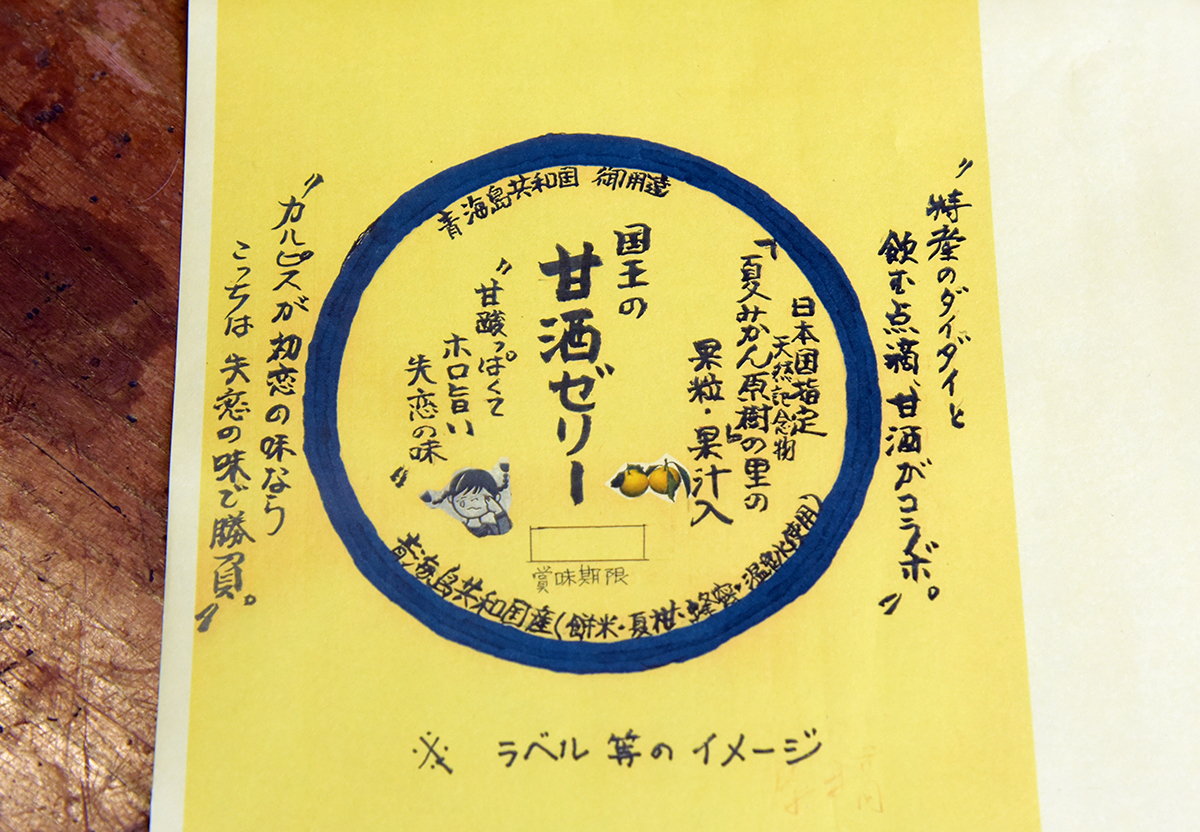 〝特産のダイダイと
飲む点滴、甘酒がコラボ。〟
青海島共和国 御用達
日本国指定
天然記念物
「夏みかん原樹の里の」
果粒・果汁入
国王の
甘酒ゼリー
〝甘酸っぱくて
ホロ旨い
失恋の味〟
賞味期限
青海島共和国産(餅米・夏柑・蜂蜜・温泉水使用)
〝カルピスが初恋の味なら
こっちは失恋の味で勝負。〟
※ ラベル等のイメージ